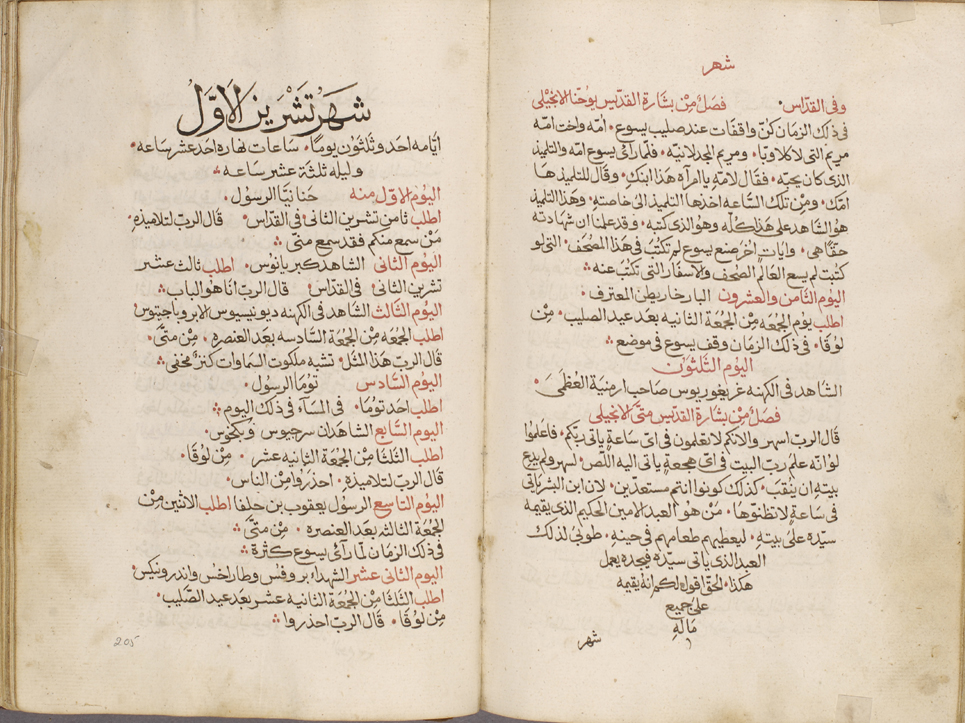 شهر
وفى القدّاس٠ فصَل مِنْ بشارة القدّيس يوحنّا الانجيلى
فى ذلك الزمَان كنّ واقفات عند صليب يسوع٠ امّه واخت امّه
مريَم التى لاكلاوبّا٠ ومريم المجدلانيّه٠ فلمّا رآئ يسوع امّه والتلميذ
الذى كان يحبّه٠ فقال لامّهِ يا امرآه هذا ابنكِ٠ وقال للتلميذ هَا
امّك٠ ومِنْ تلك السّاعه اخذها التلميذ الى خاصته٠ وهذا التلميذ
هو الشاهد على هذا كلّه وهو الذى كتبه٠ وقد علمنا ان شهادته
حقّاً هى٠ وايات اخر صنع يسوع لم تكتبْ فى هذا المصحَف٠ التى لو
كتبت لم يسع العَالم الصُحف والاسفَار التى تكتبُ عنه
اليَوم الثَامن والعشرون البار خاريطن المعترف٠
اطلب يوم الجمعَه مِنْ الجمعَة الثانيه بعَد عيد الصليب٠ مِنْ
لوُقا٠ فى ذلك الزمَان وقف يسوع فى موضع
اليَوم الثلثون
الشاهد فى الكهنه غريغوريوس صاحب ارمنية العُظمَى٠
فصَل مِنْ بشارة القدّيس متّى الانجيلى
قال الربّ اسهروا لانكم لا تعلمون فى اىّ سَاعةٍ ياتى ربّكم٠ فاعلموا
لو انّه علم ربّ البيت فى اىّ هجعةٍ ياتى اليه اللّص٠ لسهر ولم يدع
بيته ان يُنقب٠ كذلك كونوا انتم مستعدّين٠ لان ابن البشر ياتى
فى سَاعةٍ لا تظنّوهَا٠ مَن هو العبد الامين الحكيم الذى يقيمه
سيّده علىَ بيتهِ٠ ليعطيهم طعامهم فى حينهِ٠ طوبىَ لذلك
العبد الذى ياتى سيّده فيجده يعمل
هكذا٠ الحقّ اقول لكم انّه يقيمه
علىَ جميع
مَالهِ
شهر
شَهر تشرين الاوّل
ايّامه احَد وثلثون يومًا٠ سَاعات نهاره احَد عشر سَاعه٠
وليله ثلثة عشر سَاعه
اليَوم الاوّل منه حَنانيّا الرسول٠
اطلب ثامن تشرين الثانى فى القدّاس٠ قال الربّ لتلاميذهِ٠
مَنْ سمع منكم فقد سمع منّى
اليَوم الثانى الشاهد كبريانوس٠ اطلب ثالث عشر
تشرين الثانى٠ فى القدّاس٠ قال الربّ انا هو الباب
اليَوم الثالث الشاهد فى الكهنه ديونيسيوس الايروباجيتوس
اطلب الجمعَه مِنْ الجمعَة السّادسه بعد العنصره٠ مِن متّى٠
قال الربّ هذا المَثل٠ تشبه ملكوت السماوات كنزٌ مخفى
اليَوم السّادس تومَا الرسول٠
اطلب احَد تومَا٠ فى المسَآء فى ذلك اليوم
اليَوم السّابع الشاهدَان سرجيوس وبكخوس٠
اطلب الثلثا مِنْ الجمعَة الثانيه عشر٠ مِنْ لوُقا٠
قال الربّ لتلاميذه٠ احذروا مِنْ الناس٠
اليَوم التاسع الرسول يعقوب بن حلفا اطلب الاثنين مِنْ
الجمعَة الثالثه بعد العنصره٠ مِنْ متّى
فى ذلك الزمَان لمّا رآئ يسوع كثرة
اليَوم الثانى عشر الشهدآء بروفس وطاراخس واندرونيكس
اطلب الثلثا مِنْ الجمعَة الثانيه عشر بعد عيد الصَليب٠
مِن لوُقا٠ قال الربّ احذروا
205